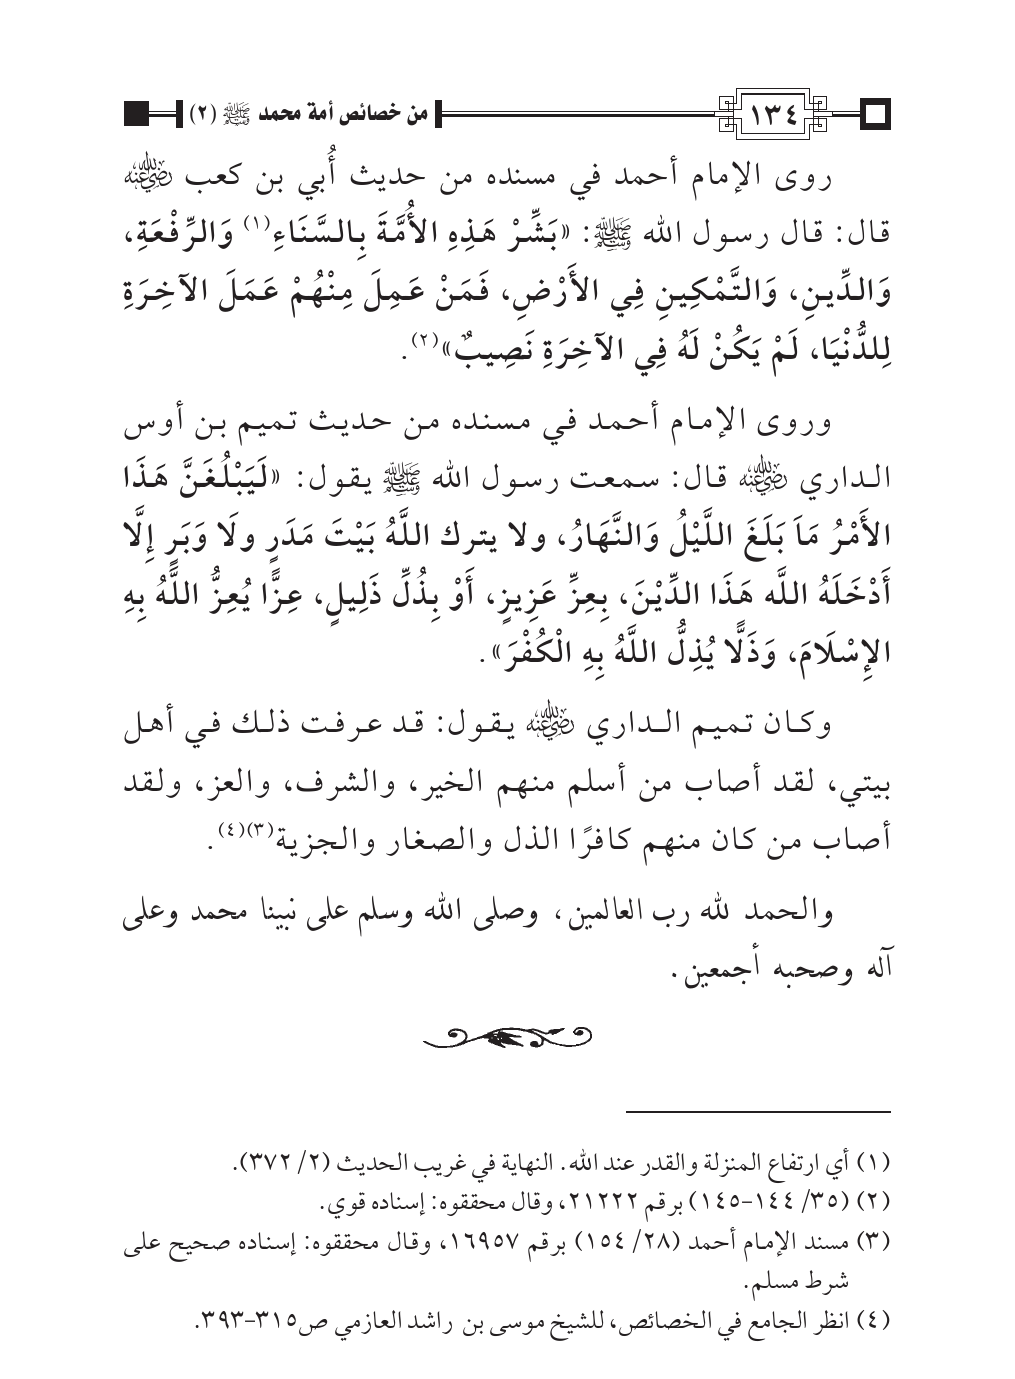 ١٣٤ من خصائص أمة محمد ﷺ (٢)
روى الإمام أحمد في مسنده من حديث أُبي بن كعب رضي الله عنه
قال: قال رسول الله ﷺ: «بَشِّرْ هَذِهِ الأُمَّةَ بِالسَّنَاءِ(١) وَالرِّفْعَةِ،
وَالدِّينِ، وَالتَّمْكِينِ فِي الأَرْضِ، فَمَنْ عَمِلَ مِنْهُمْ عَمَلَ الآخِرَةِ
لِلدُّنْيَا، لَمْ يَكُنْ لَهُ فِي الآخِرَةِ نَصِيبٌ»(٢).
وروى الإمام أحمد في مسنده من حديث تميم بن أوس
الداري رضي الله عنه قال: سمعت رسول الله ﷺ يقول: «لَيَبْلُغَنَّ هَذَا
الأَمْرُ مَاَ بَلَغَ اللَّيْلُ وَالنَّهَارُ، ولا يترك اللَّهُ بَيْتَ مَدَرٍ ولَا وَبَرٍ إِلَّا
أَدْخَلَهُ اللَّه هَذَا الدِّيْنَ، بِعِزِّ عَزِيزٍ، أَوْ بِذُلِّ ذَلِيلٍ، عِزًّا يُعِزُّ اللَّهُ بِهِ
الإِسْلَامَ، وَذَلًّا يُذِلُّ اللَّهُ بِهِ الْكُفْرَ».
وكان تميم الداري رضي الله عنه يقول: قد عرفت ذلك في أهل
بيتي، لقد أصاب من أسلم منهم الخير، والشرف، والعز، ولقد
أصاب من كان منهم كافرًا الذل والصغار والجزية(٣)(٤).
والحمد لله رب العالمين، وصلى الله وسلم على نبينا محمد وعلى
آله وصحبه أجمعين.
(١) أي ارتفاع المنزلة والقدر عند الله. النهاية في غريب الحديث (٢/ ٣٧٢).
(٢) (٣٥/ ١٤٤-١٤٥) برقم ٢١٢٢٢، وقال محققوه: إسناده قوي.
(٣) مسند الإمام أحمد (٢٨/ ١٥٤) برقم ١٦٩٥٧، وقال محققوه: إسناده صحيح على
شرط مسلم.
(٤) انظر الجامع في الخصائص، للشيخ موسى بن راشد العازمي ص٣١٥-٣٩٣.